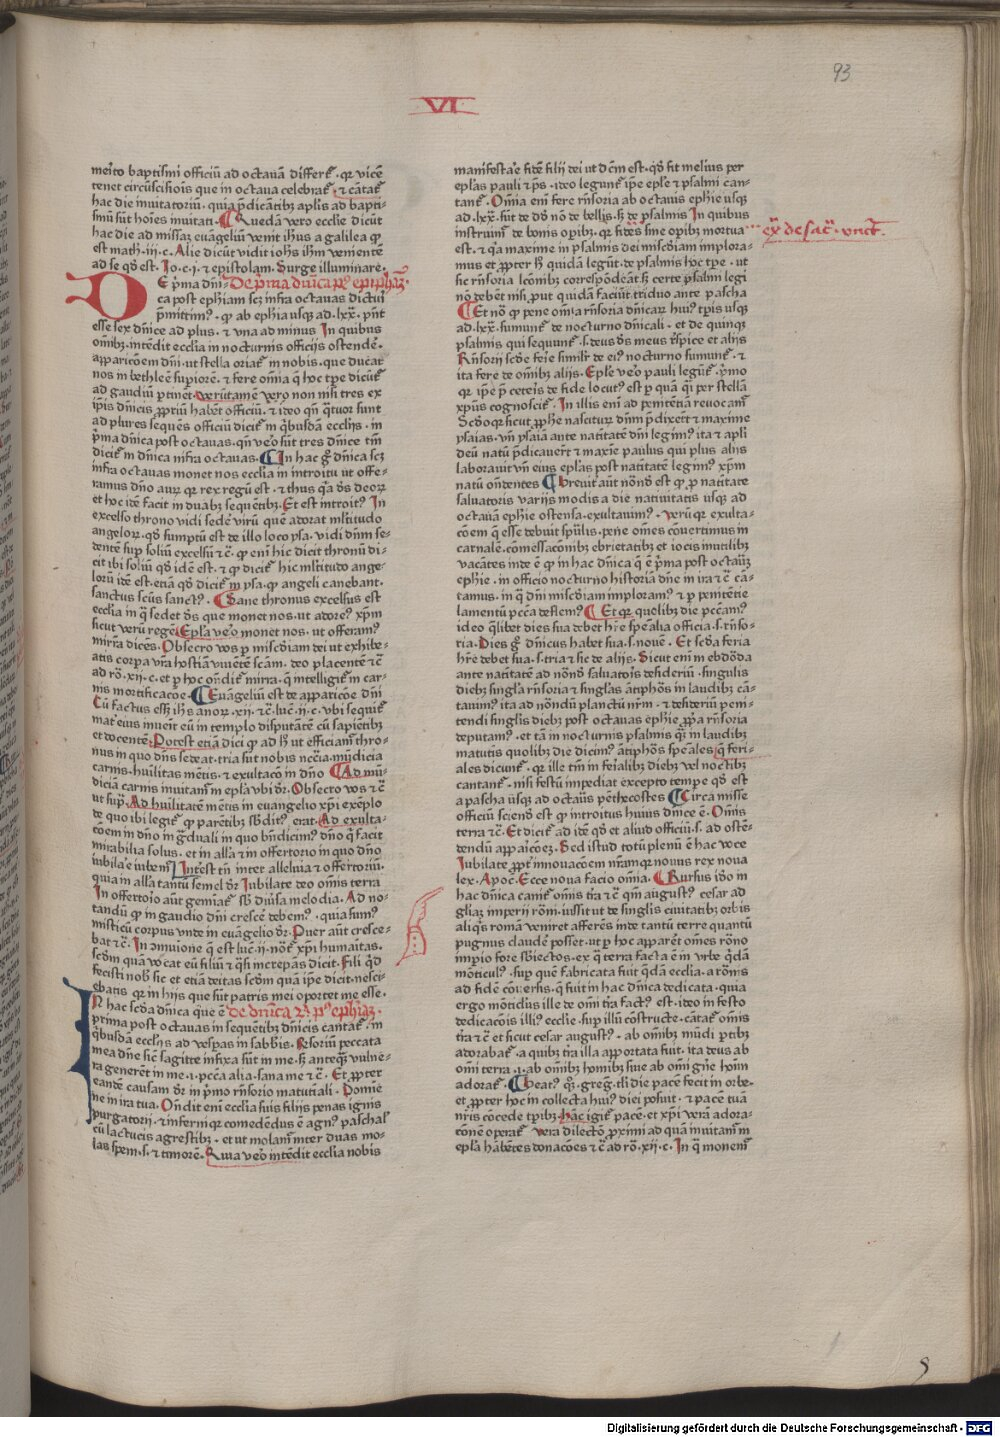 93
VI
meĩto baptismi officiũ ad octauã differt̃ · qr vicẽ
tenet circũcisiõis que in octaua celebrat̃ · ⁊ cãtat̃
hac die inuitatoriũ · quia p̃dicãtibꝫ aplis ad bapti-
smũ sũt hoĩes inuitati · Quedã vero ecclie dicũt
hac die ad missaꝫ euãgeliũ venit ihus a galilea qꝫ
est math · iij · c · Alie dicũt vidit iohs ihm venientẽ
ad se qđ est · Jo · c · i · ⁊ epistolam · Surge illuminare ·
DE p̃ma dñi- De p̃ma dñica pꝰ epiphaꝫ ·
ca post ephiam scꝫ infra octauas dictui
p̃mittimꝰ · qꝫ ab ephia usqꝫ ad · lxx · p̃nt
esse sex dñice ad plus · ⁊ vna ad minus In quibus
oĩbꝫ intẽdit ecclia in nocturnis officijs ostendẽ ·
apparicõem dñi · ut stella oriat̃ in nobis · que ducat
nos in bethleẽ supiorẽ · ⁊ fere omĩa q̃ hoc tpe dicũt̃
ad gaudiũ ptinet · verũtamẽ vero non nisi tres ex
ip̃is dñicis ꝓpriũ habẽt officiũ · ⁊ ideo qñ q̃tuor sunt
ad plures seques officiũ dicit̃ in q̃busdã ecclijs · in
p̃ma dñica post octauas · qñ veo sũt tres dñice tm̃
dicit̃ in dñica infra octauas · In hac g̃ dñica scꝫ
infra octauas monet nos ecclia in introitu ut offe-
ramus dño auꝫ qr rex regũ est · ⁊ thus q̃a ds deoꝝ
et hoc idẽ facit in duabꝫ sequẽtibꝫ · Et est introitꝰ · In
excelso throno vidi sedẽ virũ que adorat m̃ltitudo
angeloꝝ · qđ sumptũ est de illo loco ysa · vidi dñm se-
dentẽ sup soliũ excelsũ ⁊ c̃ · qꝫ eni hic dicit thronũ di-
cit ibi soliũ qđ idẽ est · ⁊ qꝫ dicit̃ hic m̃ltitudo ange-
lorũ idẽ est · etiã qđ dicit̃ in ysa · qꝫ angeli canebant ·
sanctus scũs sanctꝰ · Sane thronus excelsus est
ecclia in q̃ sedet ds que monet nos · ut adoreꝰ xpm
sicut verũ regẽ · Epla veo monet nos · ut offeramꝰ
mirrã dicẽs · Obsecro vos ꝑ miscdiam dei ut exhibe-
atis corpa vr̃a hostiã viuẽtẽ scãm · deo placentẽ ⁊ c̃
ad ro · xii · c · et ꝑ hoc oñdit̃ mirra · q̃ intelligit̃ in car-
nis mortificacõe · Euãgeliũ est de apparicõe dñi
Cũ factus ess̃ ihs anoꝝ · xij · ⁊ c̃ · luc̃ · ij · c · vbi sequit̃
mat̃ eius inueĩt eũ in templo disputãtẽ cũ sapiẽtibꝫ
et docentẽ · Potest etiã dici qꝫ ad h̃ ut efficiam̃ thro-
nus in quo dñs sedeat · tria sũt nobis nccĩa · mũdicia
carnis · huĩlitas mẽtis · ⁊ exultaco in dño · Ad mũ-
diciã carnis inuitam̃ in epl̃a vbi d̃r · Obsecro vos ⁊ c̃
ut supꝰ · Ad huĩlitatẽ mẽtis in euangelio xp̃i exẽplo
de quo ibi legit̃ qꝫ parẽtibꝫ sb̃ditꝰ erat · Ad exulta-
cõem in dño in g̃duali in quo bñdicimꝰ dño q̃ facit
mirabilia solus · et in all̃a ⁊ in offertorio in quo dño
iubila'e iubem̃ Int̃est tñ inter alleluia ⁊ offertoriũ ·
quia in all̃a tantũ semel d̃r Iubilate deo omĩs terra
In offertoĩo aũt gemiat̃ sb̃ diũsa melodia · Ad no-
tandũ qꝫ in gaudio dñi crescẽ debemꝰ · quia sumꝰ
misticũ corpus vnde in euãgelio d̃r · Puer aũt cresce-
bat ⁊ c̃ · In om̃uione q̃ est luc̃ · ij · not̃ xp̃i humãitas ·
scd̃m quã vocat eũ filiũ ⁊ q̃si increpas dicit · Fili qđ
fecisti nob̃ sic et etiã deitas scd̃m quã ip̃e dicit · nesci-
ebatis qr in hijs que sũt patris mei oportet me esse ·
IN hac scd̃a dñica que ẽ de dñica ij pꝰ ephiaꝫ ·
prima post octauas in sequẽtibꝫ dñicis cantat̃ · in
q̃busdã ecclijs ad vesp̃as in sabb̃is · Rsoriũ peccata
mea dñe sic̃ sagitte infixa sũt in me · sꝫ anteqꝫ vulne-
ra generẽt in me · i · pc̃ca alia · sana me ⁊ c̃ · Et ꝓpter
eandẽ causam d̃r in p̃mo r̃nsorio matutiali · Domie
ne in ira tua · Oñdit eni ecclia suis filijs penas ignis
purgatorij · ⁊ infernique comedẽdus ẽ agnꝰ paschal̃
cũ lactucis agrestibꝫ · et ut molam̃ inter duas mo-
las spem · s · ⁊ timorẽ · Quia veo intẽdit ecclia nobis
manifesta'e fidẽ filij dei ut dc̃m est · qđ fit melius per
epl̃as pauli ⁊ ps̃ · ideo legunt̃ ip̃e epl̃e ⁊ psalmi can-
tant̃ · Omĩa eni fere r̃nsoria ab octauis ephie usqꝫ
ad · lxx̃ · sũt de dõ nõ de bellis · sꝫ de psalmis In quibus
instruim̃ de bonis opibꝫ · qr fides sine opibꝫ mortua
ex̃ de sac̃ · vnct̃ ·
est · ⁊ q̃a maxime in psalmis dei miscđiam implora-
mus et ꝓpter h̃ quidã legũt · de psalmis hoc tpe · ut
sic r̃nsoria lcõnibꝫ correspõdeãt · sꝫ certe psalmi legi
nõ debẽt nisi put quidã faciũt · triduo ante pascha
Et nõ qꝫ pene omĩa r̃nsoria dñicaꝝ huiꝰ tp̃is usqꝫ
ad · lxx · sumunt̃ de nocturno dñicali · et de quinqꝫ
psalmis qui sequunt̃ · s · deus ds meus r̃spice et alijs
Rñsorij scd̃e ferie simili̾r de eiꝰ nocturno sumunt̃ · ⁊
ita fere de omĩbꝫ alijs · Epl̃e veo pauli legũt̃ · p̃mo
qr ip̃e p̃ ceteris de fide locutꝰ est ꝑ quã q̃si per stellã
xpus cognoscit̃ · In illis eni ad penitẽtiã reuocam̃
Scđo qr sicut ꝓphe nascitur dñm p̃dixer̃t ⁊ maxime
ysaias · vñ ysaiã ante natitatẽ dñi legimꝰ ita ⁊ apl̃i
deũ natũ p̃dicauer̃t ⁊ maxie paulus qui plus alijs
laborauit vñ eius epl̃as post natitatẽ legimꝰ xpm
natũ oñdentes Obseruit aũt nõnđ est qꝫ ꝓ natitate
saluatoris varijs modis a die natiuitatis usqꝫ ad
octauã ephie ostensa · exultauimꝰ · verũ qr exulta-
cõem q̃ esse debuit spũlis · pene omẽs cõuertimus in
carnalẽ · cõmessacõnibꝫ ebrietatibꝫ et iocis inutilibꝫ
vacãtes inde ẽ qꝫ in hac dñica q̃ ẽ p̃ma post octauas
ephie · in officio nocturno historiã dñe in ira ⁊ c̃ cã-
tamus · in q̃ dñi miscđiam imploramꝰ ⁊ ꝑ penitẽtie
lamentũ pc̃ca deflemꝰ · Et qr quolibꝫ die pc̃camꝰ
ideo q̃libet dies sua debet h̃re spẽalia officia · s · r̃nso-
ria · Dies g̃ dñicus habet sua · s · nouẽ · Et scđa feria
h̃re debet sua · s · tria ⁊ sic de alijs · Sicut eni in ebdõda
ante natitatẽ ad nõnđ saluatoĩs desideriũ · singulis
diebꝫ singl̃a r̃nsoria ⁊ singl̃as ãtiphõs in laudibꝫ cã-
tauimꝰ ita ad nõndũ planctũ nr̃m · ⁊ desideriũ peni-
tendi singl̃is diebꝫ post octauas ephie ꝓpa r̃nsoria
deputamꝰ · et tã in nocturnis psalmis q̃ in laudibꝫ
matutis quolibꝫ die dicimꝰ ãtiphõs spẽales q̃ feri-
ales dicunt̃ · qr ille tm̃ in feĩalibꝫ diebꝫ vel noctibꝫ
cantant̃ · nisi festũ impediat excepto tempe qđ est
a pascha usqꝫ ad octauas pẽthecostes Circa misse
officiũ sciend est qꝫ introitus huius dñice ẽ · Omĩs
terra ⁊ c̃ · Et dicit̃ ad idẽ qđ et aliud officiũ · s · ad ostẽ-
dendũ appaicõeꝫ · Sed istud totũ plenũ ẽ hac voce
Iubilate ꝓpt̃ innouacõem nr̃am qr nouus rex noua
lex · Apoc̃ · Ecce noua facio omĩa · Rursus iõo in
hac dñica canit̃ omĩs t̃ra ⁊ c̃ qm̃ augustꝰ cesar ad
gliaꝫ imperij rom · iussit ut de singlis ciuitatibꝫ orbis
aliq̃s romã veniret afferẽs inde tantũ terre quantũ
pugnus claudẽ posset · ut ꝑ hoc apparẽt omẽs rõno
impio fore sbiectos · ex q̃ terra facta ẽ in vrbe q̃dã
mõticulꝰ · sup quẽ fabricata fuit q̃dã ecclia · a rõnis
ad fidẽ cõuersis · q̃ fuit in hac dñica dedicata · quia
ergo mõticulus ille de omĩ t̃ra factꝰ est · ideo in festo
dedicacõis illiꝰ ecclie · sup illũ cõstructe · cãtat̃ omĩs
t̃ra ⁊ c̃ et sicut cesar augustꝰ · ab omĩbꝫ mũdi p̃tibꝫ
adorabat̃ · a quibꝫ t̃ra illa apportata fuit · ita deus ab
omĩ terra · i · ab omĩbꝫ hoĩbꝫ siue ab omĩ gñe hoĩm
adorat̃ · Beatꝰ qꝫ greg̃ · tl̃i die pacẽ fecit in orbe ·
et ꝓpter hoc in collecta huiꝰ diei posuit · ⁊ pacẽ tuã
nr̃is cõcede tpibꝫ · hãc igit̃ pacẽ · et xpi verã adora-
cõnẽ operat̃ vera dilectõ proximi ad quã inuitam̃ in
epl̃a hãbẽtes donacões ⁊ c̃ ad ro · xij · c · In q̃ monem̃
9
Digitalisierung gefördert durch die Deutsche Forschungsgemeinschaft - DFG